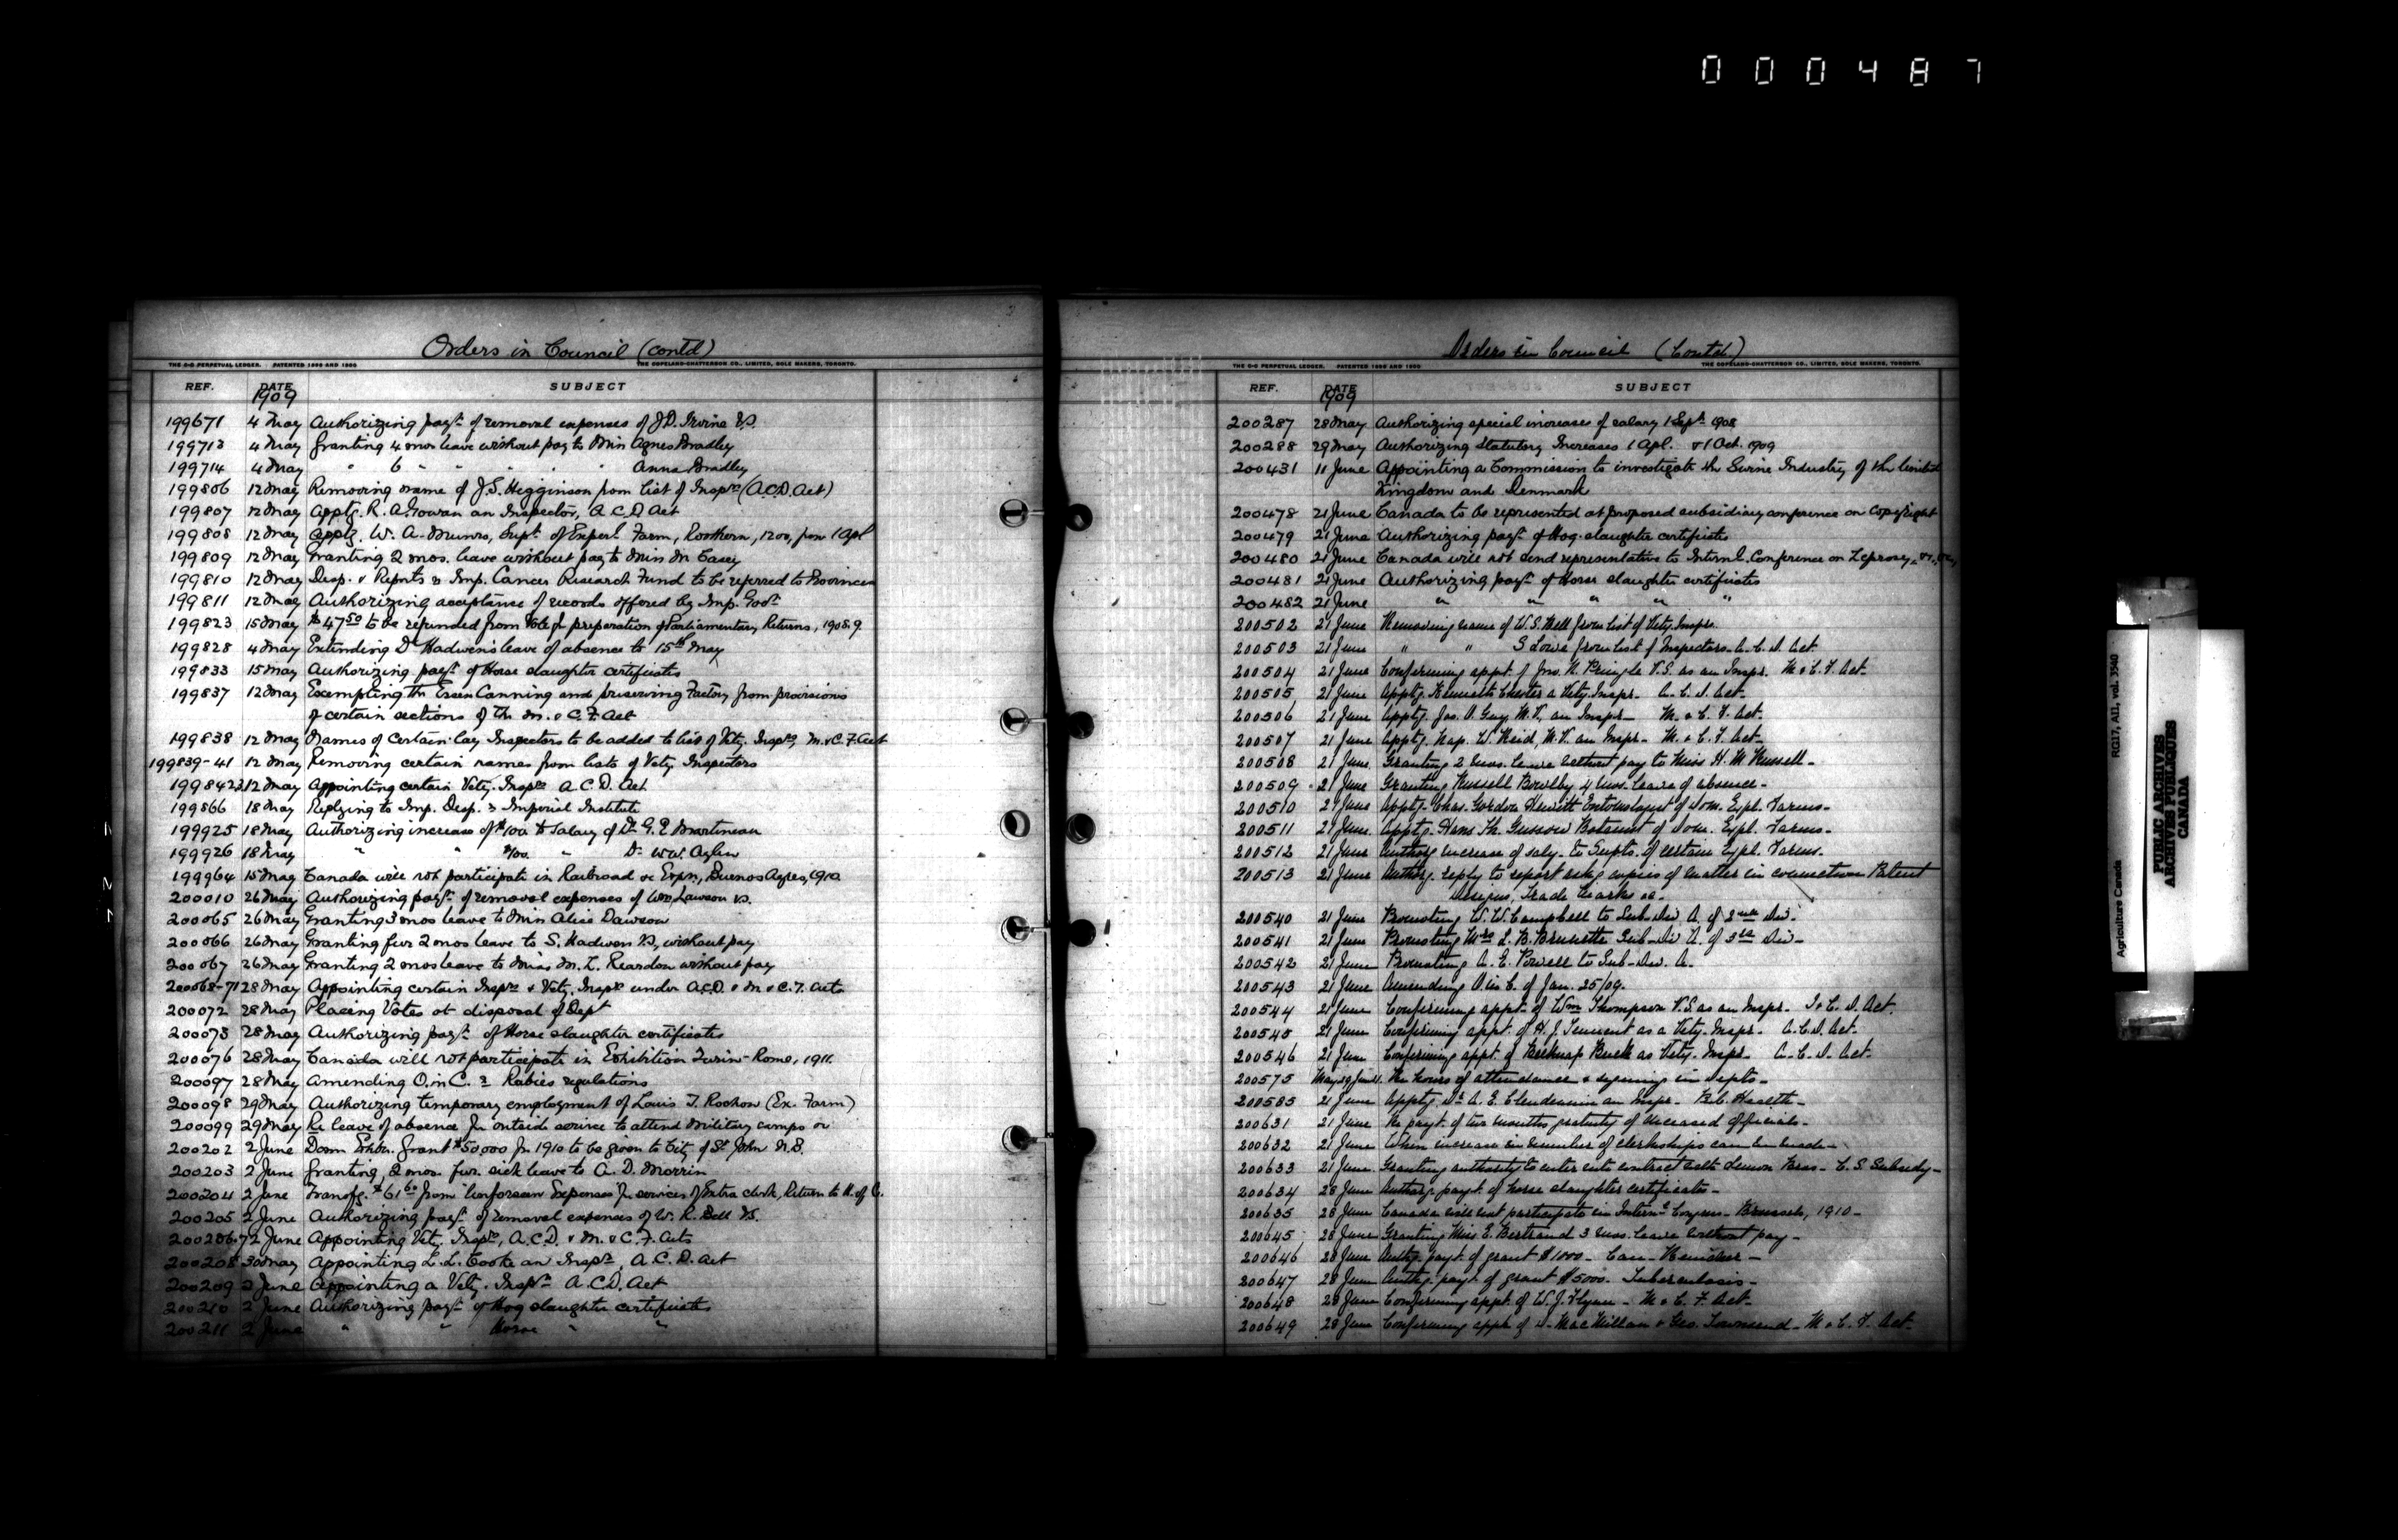 000487
Orders in Council (contd)
THE C-C PERPETUAL LEDGER. PATENTED 1896 AND 1900. THE COPELAND-CHATTERSON CO., LIMITED, SOLE MAKERS, TORONTO.
REF. DATE SUBJECT
1909
199671 4 May Authorizing payt. of removal expenses of J.D. Irvine V.S.
199713 4 May Granting 4 mos leave without pay to Miss Agnes Bradley
199714 4 May " 6 " " " " Anna Bradley
199806 12 May Removing name of J.S. Higginson from list of Insprs (A.C.D. Act)
199807 12 May Apptg. R. A. Gowan an Inspector, A C D Act
199808 12 May Apptg. W. A. Munro, Supt. of Experl Farm, Rosthern, 1200, from 1 Apl
199809 12 May Granting 2 mos. leave without pay to Miss M. Casey
199810 12 May Desp. & Reports re Imp. Cancer Research Fund to be referred to Provinces
199811 12 May Authorizing acceptance of records offered by Imp. Govt
199823 15 May $47.50 to be refunded from Vote for preparation of Parliamentary Returns, 1908.9
199828 4 May Extending Dr Hadwen's leave of absence to 15th May
199833 15 May Authorizing payt. of Horse slaughter certificates
199837 12 May Exempting the Essex Canning and preserving Factory from provisions
of certain sections of the M. & C. F. Act
199838 12 May Names of certain Lay Inspectors to be added to list of Vety. Insprs, M. & C. F. Act
199839-41 12 May Removing certain names from lists of Vety Inspectors
1998423 12 May Appointing certain Vety. Insprs A. C. D. Act
199866 18 May Replying to Imp. Desp. re Imperial Institute
199925 18 May Authorizing increase of $100 to salary of Dr. G. E Martineau
199926 18 May " " $100. " Dr. W.W. Aylen
199964 15 May Canada will not participate in Railroad &c Expn, Buenos Ayres, 1910
200010 26 May Authorizing payt. of removal expenses of Wm Lawson V.S.
200065 26 May Granting 3 mos leave to Miss Alice Dawson
200066 26 May Granting fur 2 mos leave to S. Hadwen V.S, without pay
200067 26 May Granting 2 mos leave to Miss M. L. Reardon without pay
200068-71 28 May Appointing certain Insprs & Vety. Insprs under A.C.D. & M. & C. F. Acts
200072 28 May Placing Votes at disposal of Dept
200073 28 May Authorizing payt. of Horse slaughter certificates
200076 28 May Canada will not participate in Exhibition Turin-Rome, 1911.
200097 28 May Amending O. in C. re Rabies regulations
200098 29 May Authorizing temporary employment of Louis T. Rochon (Ex. Farm)
200099 29 May Re leave of absence for outside service to attend military camps &c
200202 2 June Domn Exhbn. Grant $50,000 for 1910 to be given to City of St John N.B.
200203 2 June Granting 2 mos. fur. sick leave to A. D. Morrin
200204 2 June Transfg. $61.60 from "Unforseen Expenses" for services of Extra clerk, Return to H. of C.
200205 2 June Authorizing payt. of removal expenses of W. R. Bell V.S.
2002067 2 June Appointing Vet. Insprs, A.C.D. & M. & C. F. Acts
200208 30 May Appointing L. L. Cooke an Inspr, A. C. D. Act
200209 2 June Appointing a Vety. Inspr. A.C.D. Act
200210 2 June Authorizing payt. of Hog slaughter certificates
200211 2 June " " Horse " "
Orders in Council (Contd.)
THE C-C PERPETUAL LEDGER. PATENTED 1896 AND 1900. THE COPELAND-CHATTERSON CO., LIMITED, SOLE MAKERS, TORONTO.
REF. DATE SUBJECT
1909
200287 28 May Authorizing special increases of salary 1 Sept. 1908
200288 29 May Authorizing Statutory Increases 1 Apl. & 1 Oct. 1909
200431 11 June Appointing a Commission to investigate the Swine Industry of the United
Kingdom and Denmark
200478 21 June Canada to be represented at proposed subsidiary conference on Copyright
200479 21 June Authorizing payt. of Hog slaughter certificates
200480 21 June Canada will not send representative to Internl. Conference on Leprosy,
200481 21 June Authorizing payt. of Horse slaughter certificates
200482 21 June " " " " "
200502 21 June Removing name of W.S. Bell from list of Vety. Inspr.
200503 21 June " " S Lowe from list of Inspectors A. C. D. Act.
200504 21 June Confirming appt. of Jno. R. Pringle V.S. as an Inspr. M. & C. F. Act.
200505 21 June Apptg. Kenneth Chester a Vety. Inspr. A. C. D. Act.
200506 21 June Apptg. Jas. O. Guy, M.V. an Inspr. M. & C. F. Act.
200507 21 June Apptg. Nap. W. Reid, M.V. an Inspr. M. & C. F. Act
200508 21 June Granting 2 mos. leave without pay to Miss H. M Russell
200509 21 June Granting Russell Bowlby 4 mos. leave of absence
200510 21 June Apptg. Chas. Gordon Hewitt Entomologist of Dom. Expl. Farms
200511 21 June Apptg. Hans Th. Gussow Botanist of Dom. Expl. Farms
200512 21 June Authorg increase of saly. to Supts. of certain Expl. Farms.
200513 21 June Authorg. reply to report askg copies of matter in connection Patent
Designs, Trade Marks &c.
200540 21 June Promoting W. W. Campbell to Sub-Div A. of 2nd Div.
200541 21 June Promoting Mrs L. B. Brunette Sub-Div A. of 3rd Div
200542 21 June Promoting A. E. Powell to Sub-Div. A.
200543 21 June Amending O. in C. of Jan. 25/09.
200544 21 June Confirming appt. of Wm Thompson V.S. as an Inspr. Act.
200545 21 June Confirming appt. of H. J. Tennent as a Vety. Inspr. A. C. D. Act.
200546 21 June Confirming appt. of Belknap Buck as Vety. Inspr. A. C. D. Act.
200575 Re hours of attendance & signing in Depts
200585 21 June Apptg. Dr. A. E. Clendennin an Inspr. Health
200631 21 June Re payt. of two months gratuity of deceased officials
200632 21 June When increase in number of clerkships can be made
200633 21 June Granting authority to enter into contract with Bros. C. S. Subsidy
200634 28 June Authorg. payt. of horse slaughter certificates
200635 28 June Canada will not participate in Internl. Congress Brussels, 1910
200645 28 June Granting Miss E. Bertrand 3 mos. leave without pay
200646 28 June Authg. payt. of grant $1000
200647 28 June Authg. payt. of grant $5000. Tuberculosis
200648 28 June Confirming appt. of W. J. Flynn M & C. F. Act
200649 28 June Confirming appt. of MacMillan & Geo. Townsend M & C. F. Act
Agriculture Canada RG17, AII, vol. 3540
PUBLIC ARCHIVES
ARCHIVES PUBLIQUES
CANADA